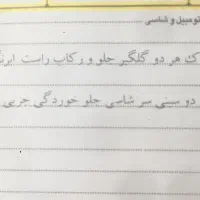 تومبیل و شاسی
ک هر دو گلگیر جلو و رکاب راست ایرن
دو سینی سر شاسی جلو خوردگی جزیی